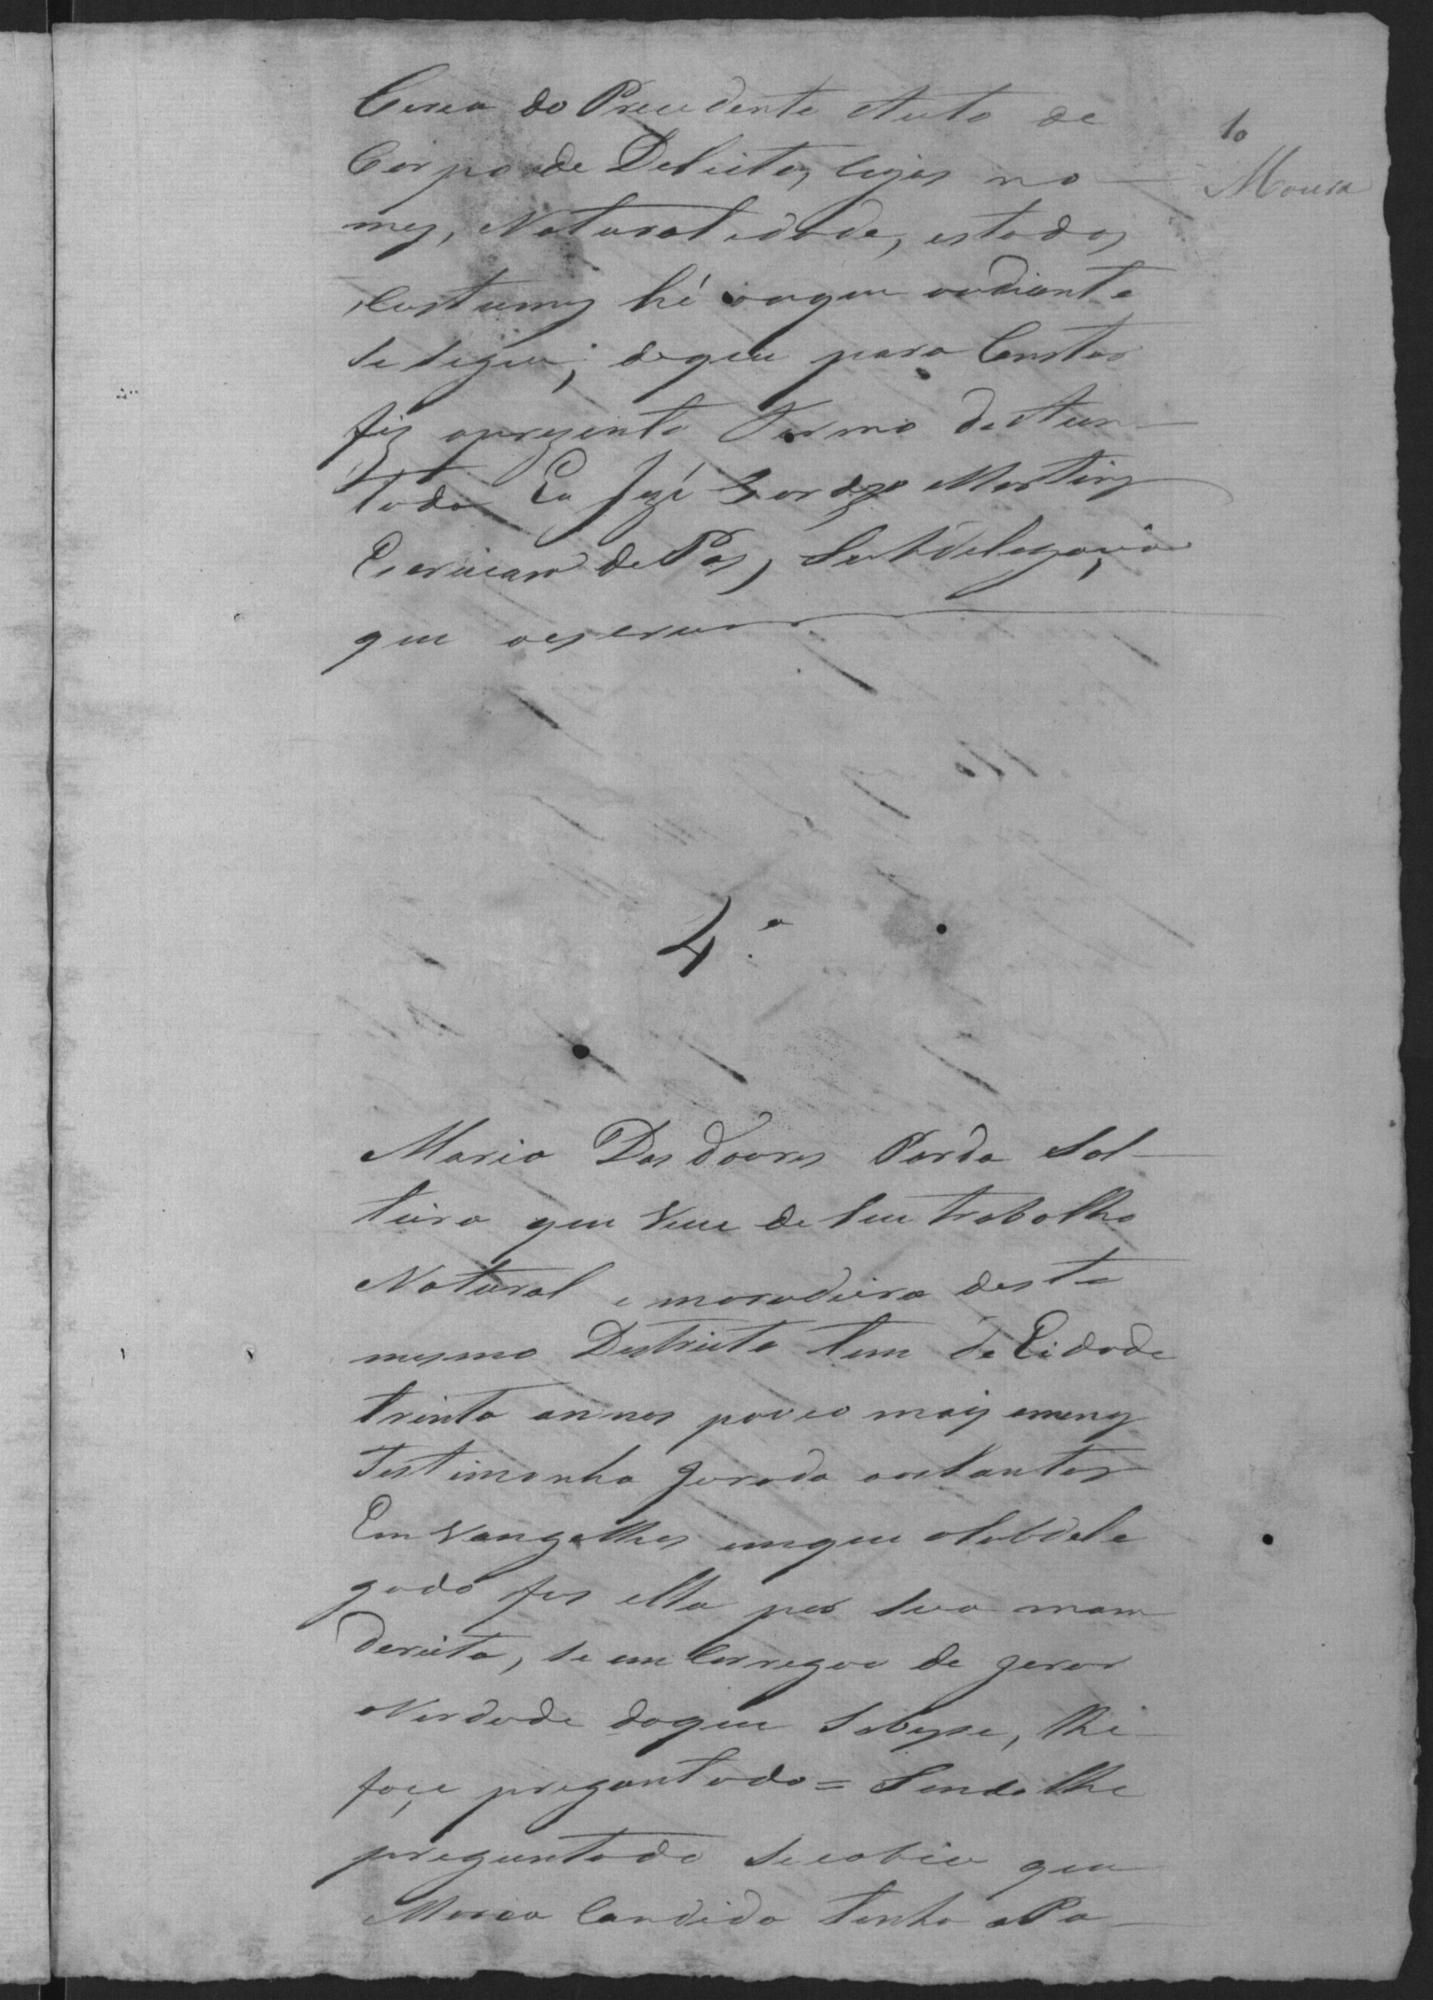 Cerca do Precedente Auto de
Corpo de Delicto, cujos no-
10
Moura
mes, Naturalidade, estados,
Custumes hé oaque audiante
se segue; deque para Constar
fiz oprezente Termo de Aun-
tada Eu José Martins
Escrivam de Pas, Subdelegacia
que oescrevi
4.ª
Maria Das Doores Parda Sol-
teira que Vive de Seu trabalho
Natural e moradeira deste
mesmo Destricto tem de Eidade
trinta annos pouco mais emenos
Testimonha Jurada aosSantos
Em Vangelhos emque oSubdele
gado fes ella por Sua mam
dereita, se emCarregou de jurar
averdade doque Sobesse, lhe
foçe preguntado = Sendo lhe
preguntado que
Maria Candida tinha Pa-